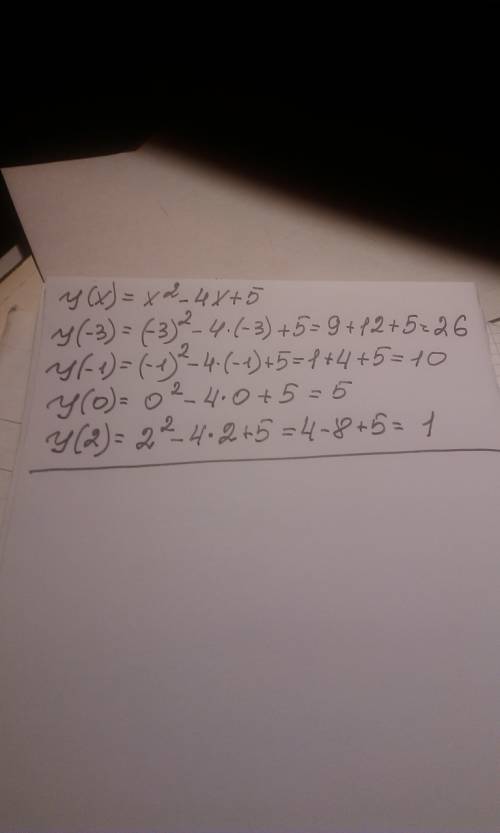 y(x) = x² - 4x + 5
y(-3) = (-3)² - 4·(-3) + 5 = 9 + 12 + 5 = 26
y(-1) = (-1)² - 4·(-1) + 5 = 1 + 4 + 5 = 10
y(0) = 0² - 4·0 + 5 = 5
y(2) = 2² - 4·2 + 5 = 4 - 8 + 5 = 1